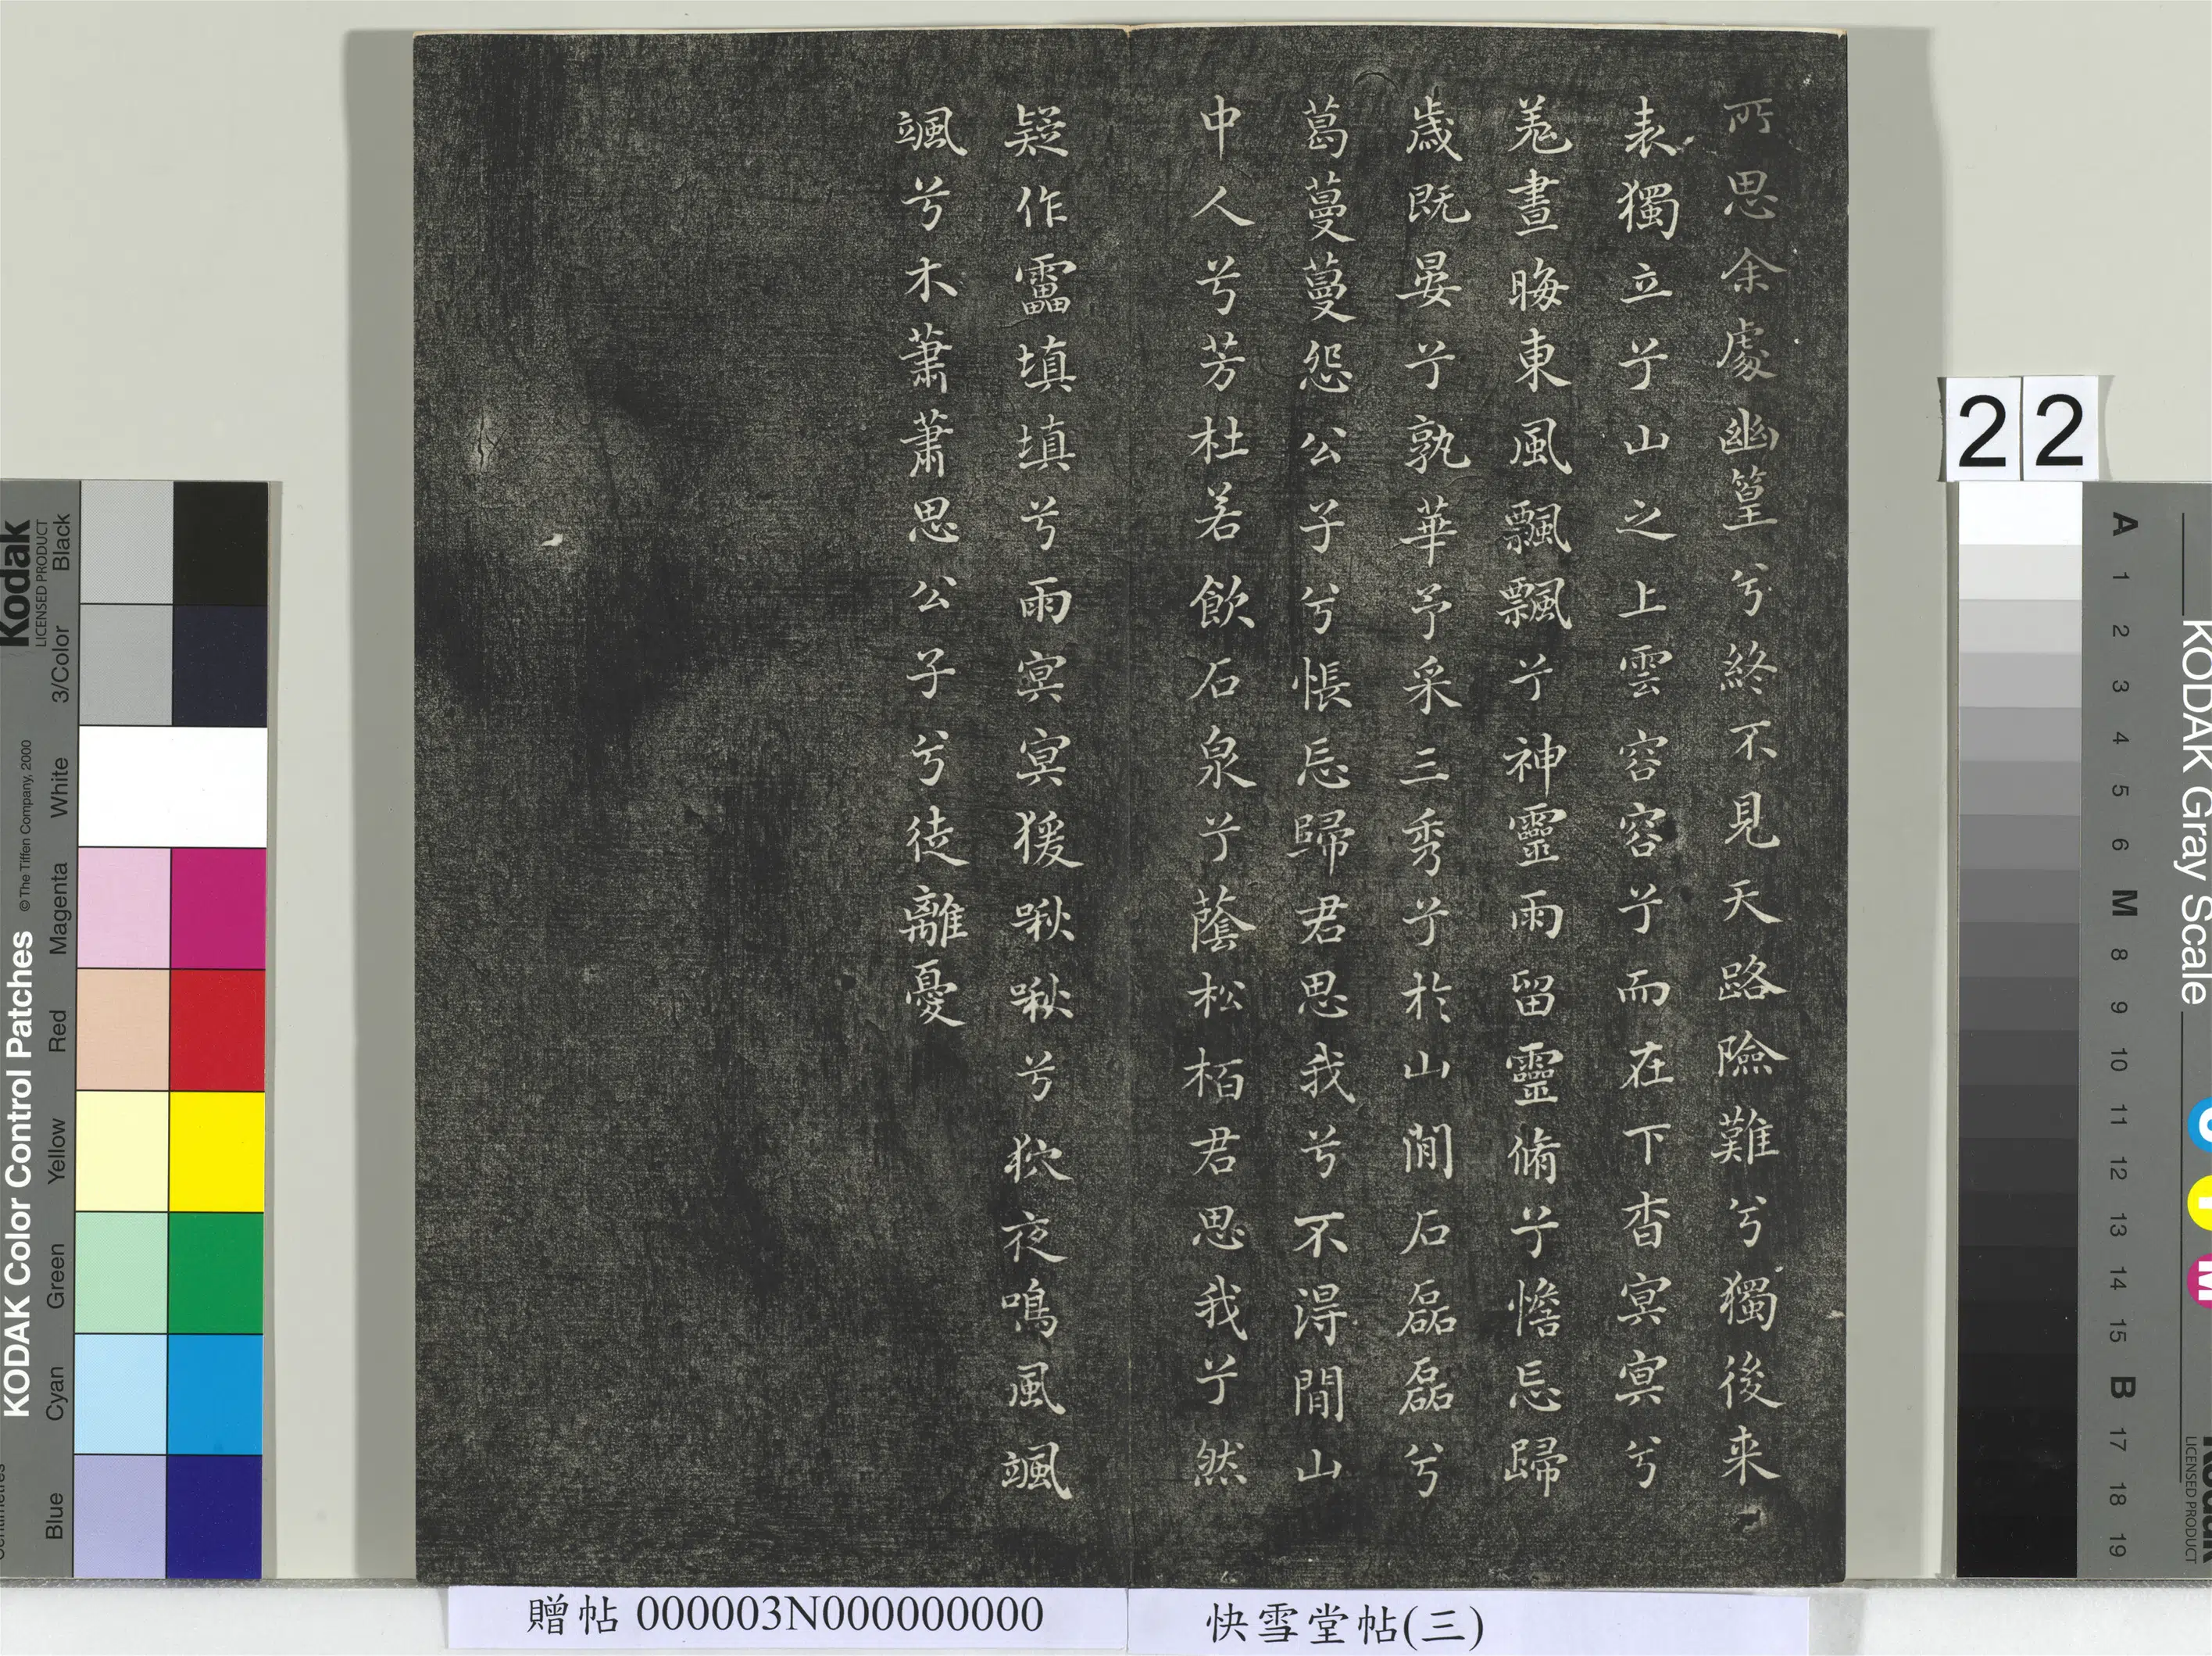 所思余處幽篁兮終不見天路險難兮獨後来
表獨立兮山之上雲容容兮而在下杳冥冥兮
羌晝晦東風飄飄兮神靈雨留靈脩兮憺忘歸
歲既晏兮孰華予采三秀兮於山間石磊磊兮
葛蔓蔓怨公子兮悵忘歸君思我兮不得閒山
中人兮芳杜若飲石泉兮蔭松栢君思我兮然
疑作靁填填兮雨冥冥猨啾啾兮狖夜鳴風颯
颯兮木蕭蕭思公子兮徒離憂
22
快雪堂帖(三)
贈帖 000003N000000000
KODAK Color Control Patches © The Tiffen Company, 2000
Kodak
LICENSED PRODUCT
Blue Cyan Green Yellow Red Magenta White 3/Color Black
KODAK Gray Scale
A 1 2 3 4 5 6 M 8 9 10 11 12 13 14 15 B 17 18 19
LICENSED PRODUCT